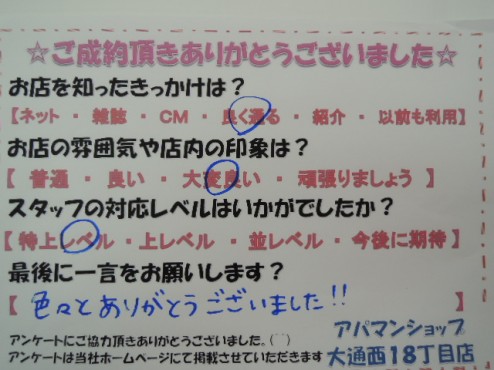 ☆ご成約頂きありがとうございました☆
お店を知ったきっかけは？
【ネット ・ 雑誌 ・ CM ・ 良く通る ・ 紹介 ・ 以前も利用】
お店の雰囲気や店内の印象は？
【 普通 ・ 良い ・ 大変良い ・ 頑張りましょう 】
スタッフの対応レベルはいかがでしたか？
【特上レベル ・ 上レベル ・ 並レベル ・ 今後に期待】
最後に一言をお願いします？
【 色々とありがとうございました!!
アンケートにご協力頂きありがとうございました。(⌒⌒)
アンケートは当社ホームページにて掲載させていただきます
アパマンショップ
大通西18丁目店